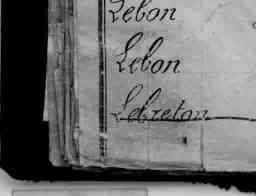 Lebon
Lebon
Lebreton